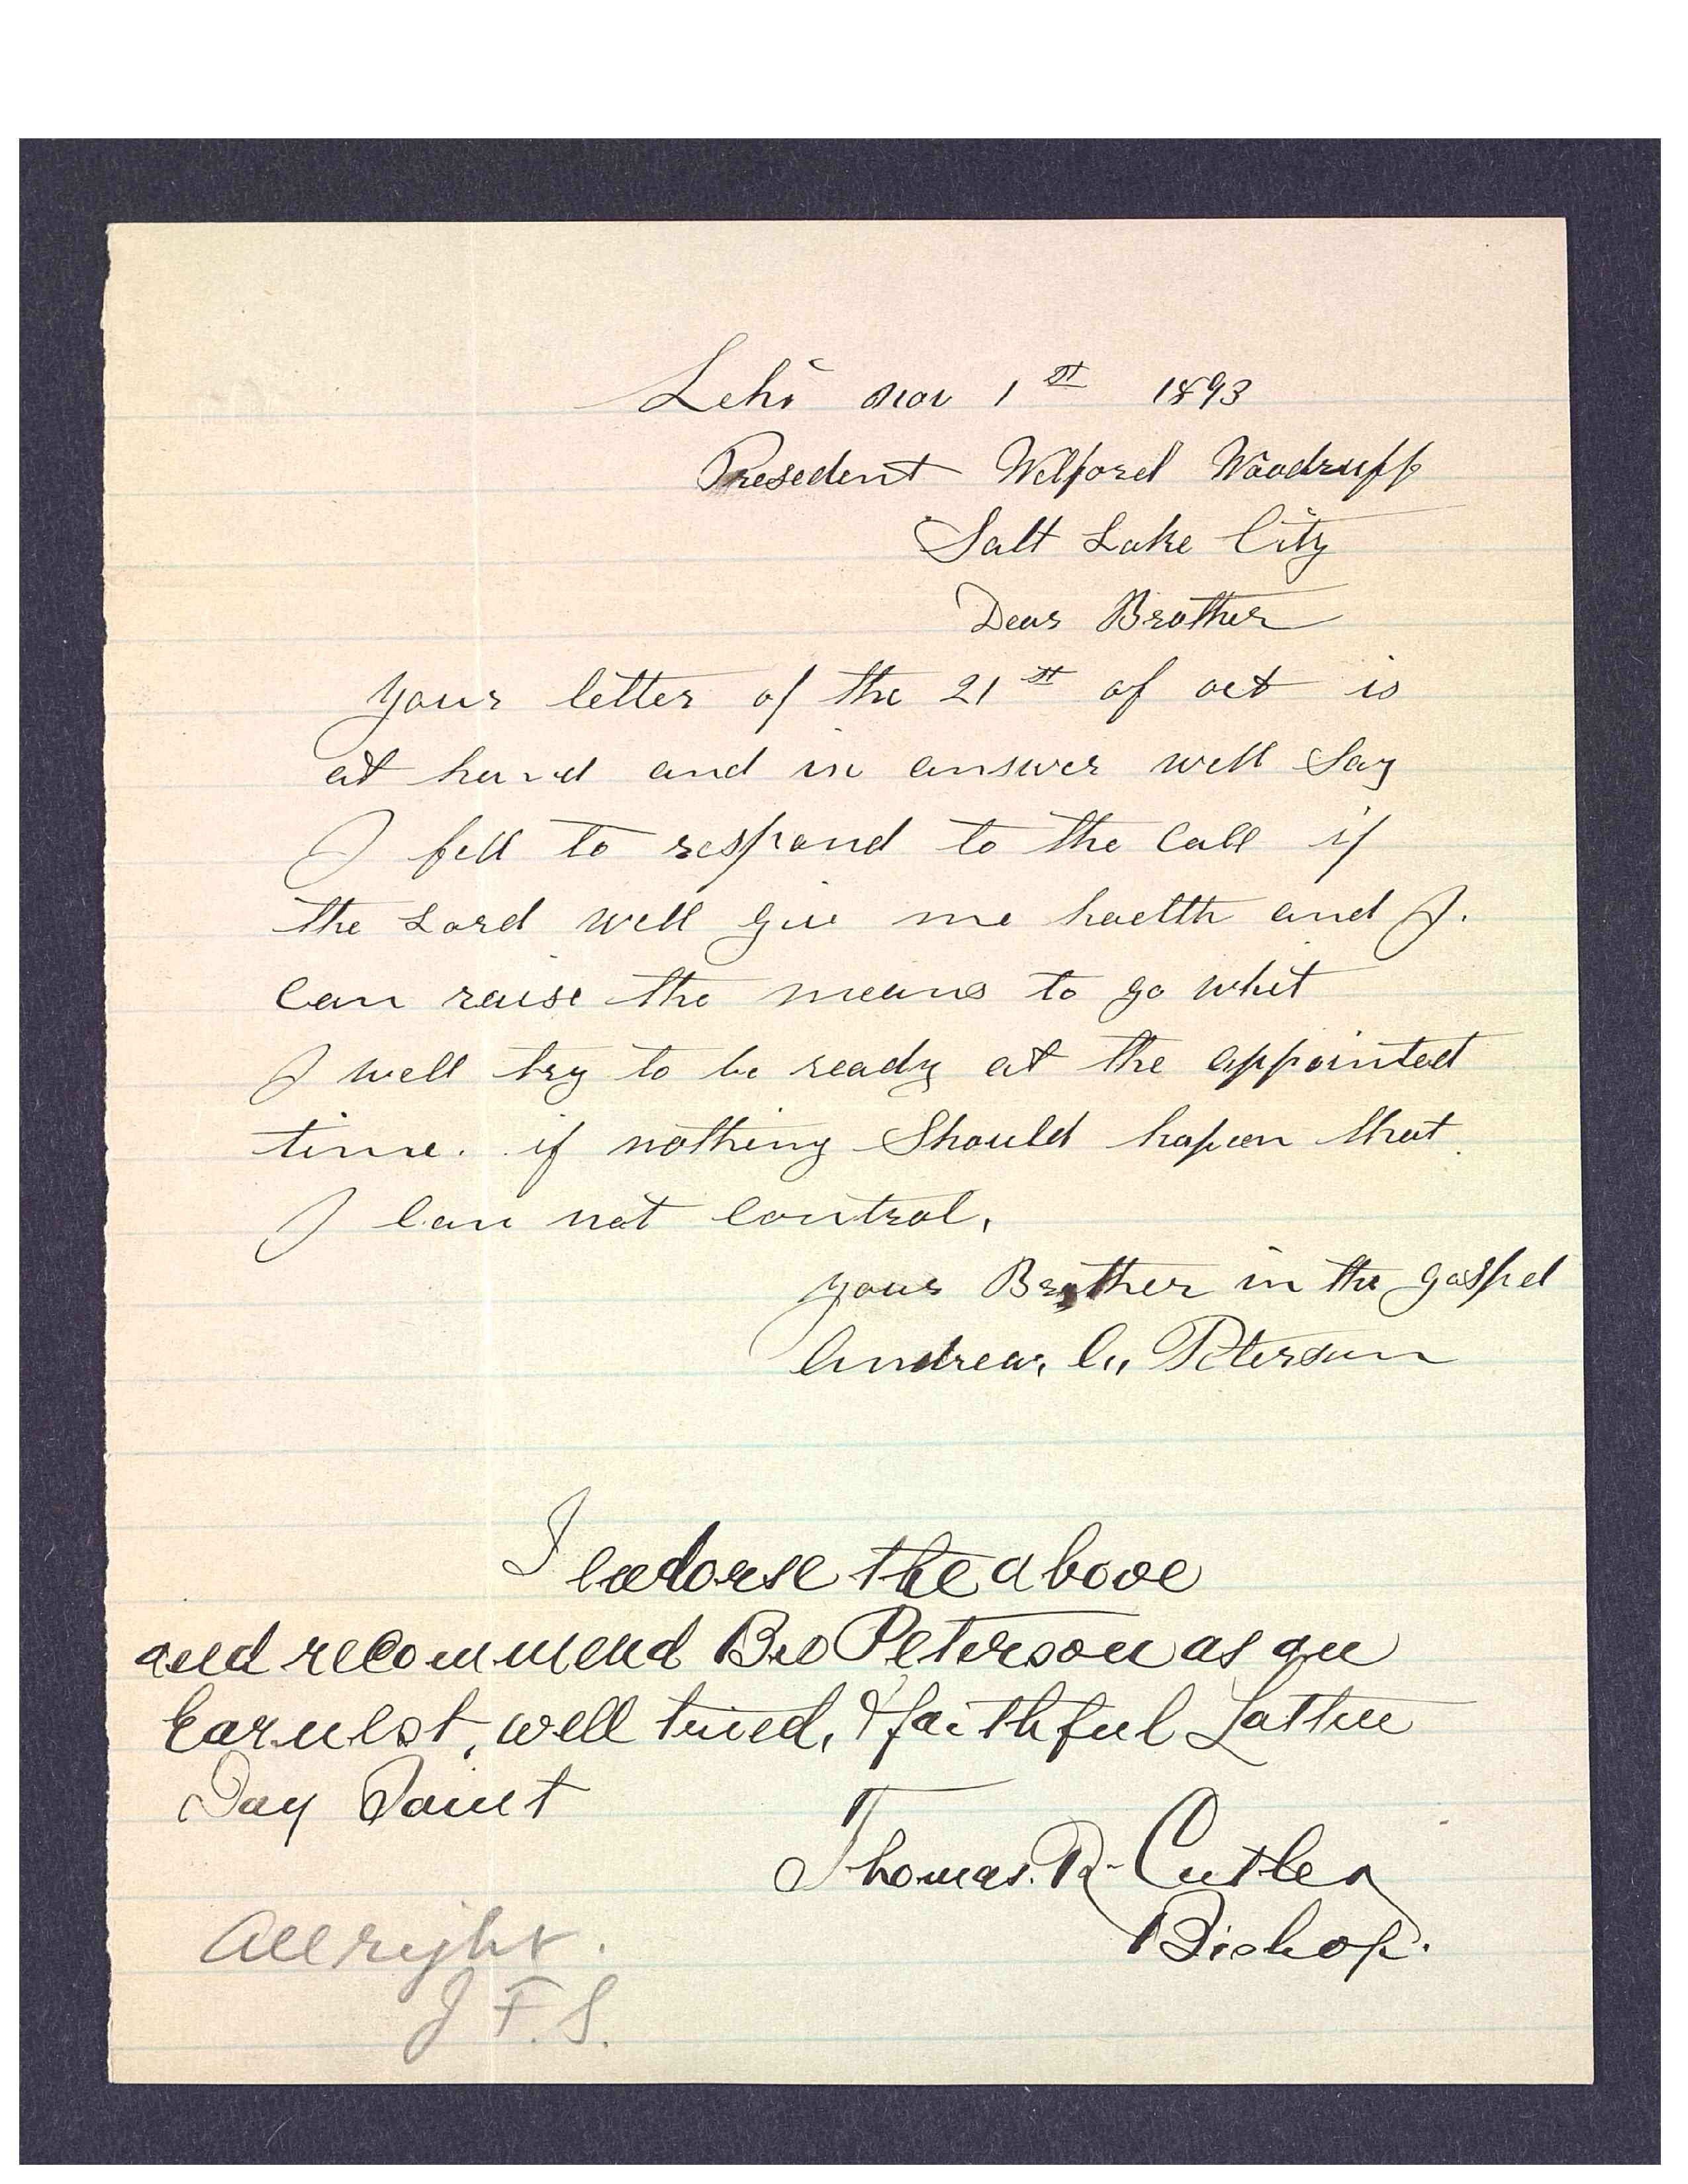 Lehi Nov 1st 1893
Presedent Welford Woodruff
Salt Lake City
Dear Brother
your letter of the 21st of oct is
at hand and in answer well Say
I fell to respond to the Call if
the Lord well give me haelth and I.
Can raise the means to go whit
I well try to be ready at the appointed
time. if nothing Should hapen that
I Can not Control,
your Brother in the gospel
Andrew, C,, Peterson
I endorse the above
and recommend Bro Peterson as an
Earnest, well tried, & faithful Latter
Day Saint
Thomas. R. Cutler
Bishop.
All right.
J F. S.